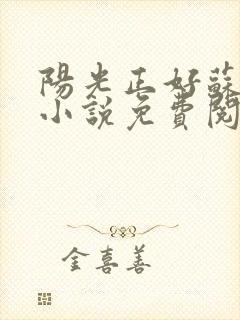 陽光正好蘇
小說免費閱
金喜善